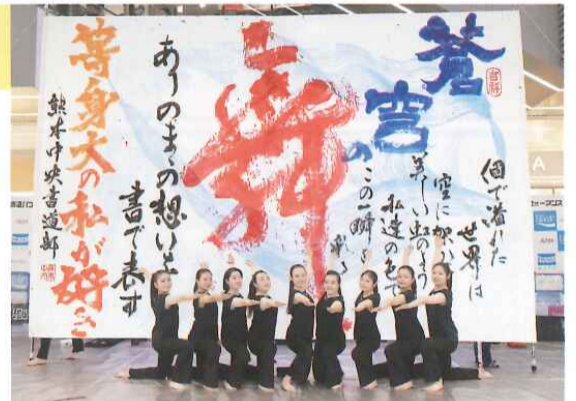 蒼空の
個で溢れた
世界は
空に
美しい虹のよう
私達の色で
この一瞬を
舞
ありのままの想いを
書で表す
等身大の私が好き
熊本中央書道部
A